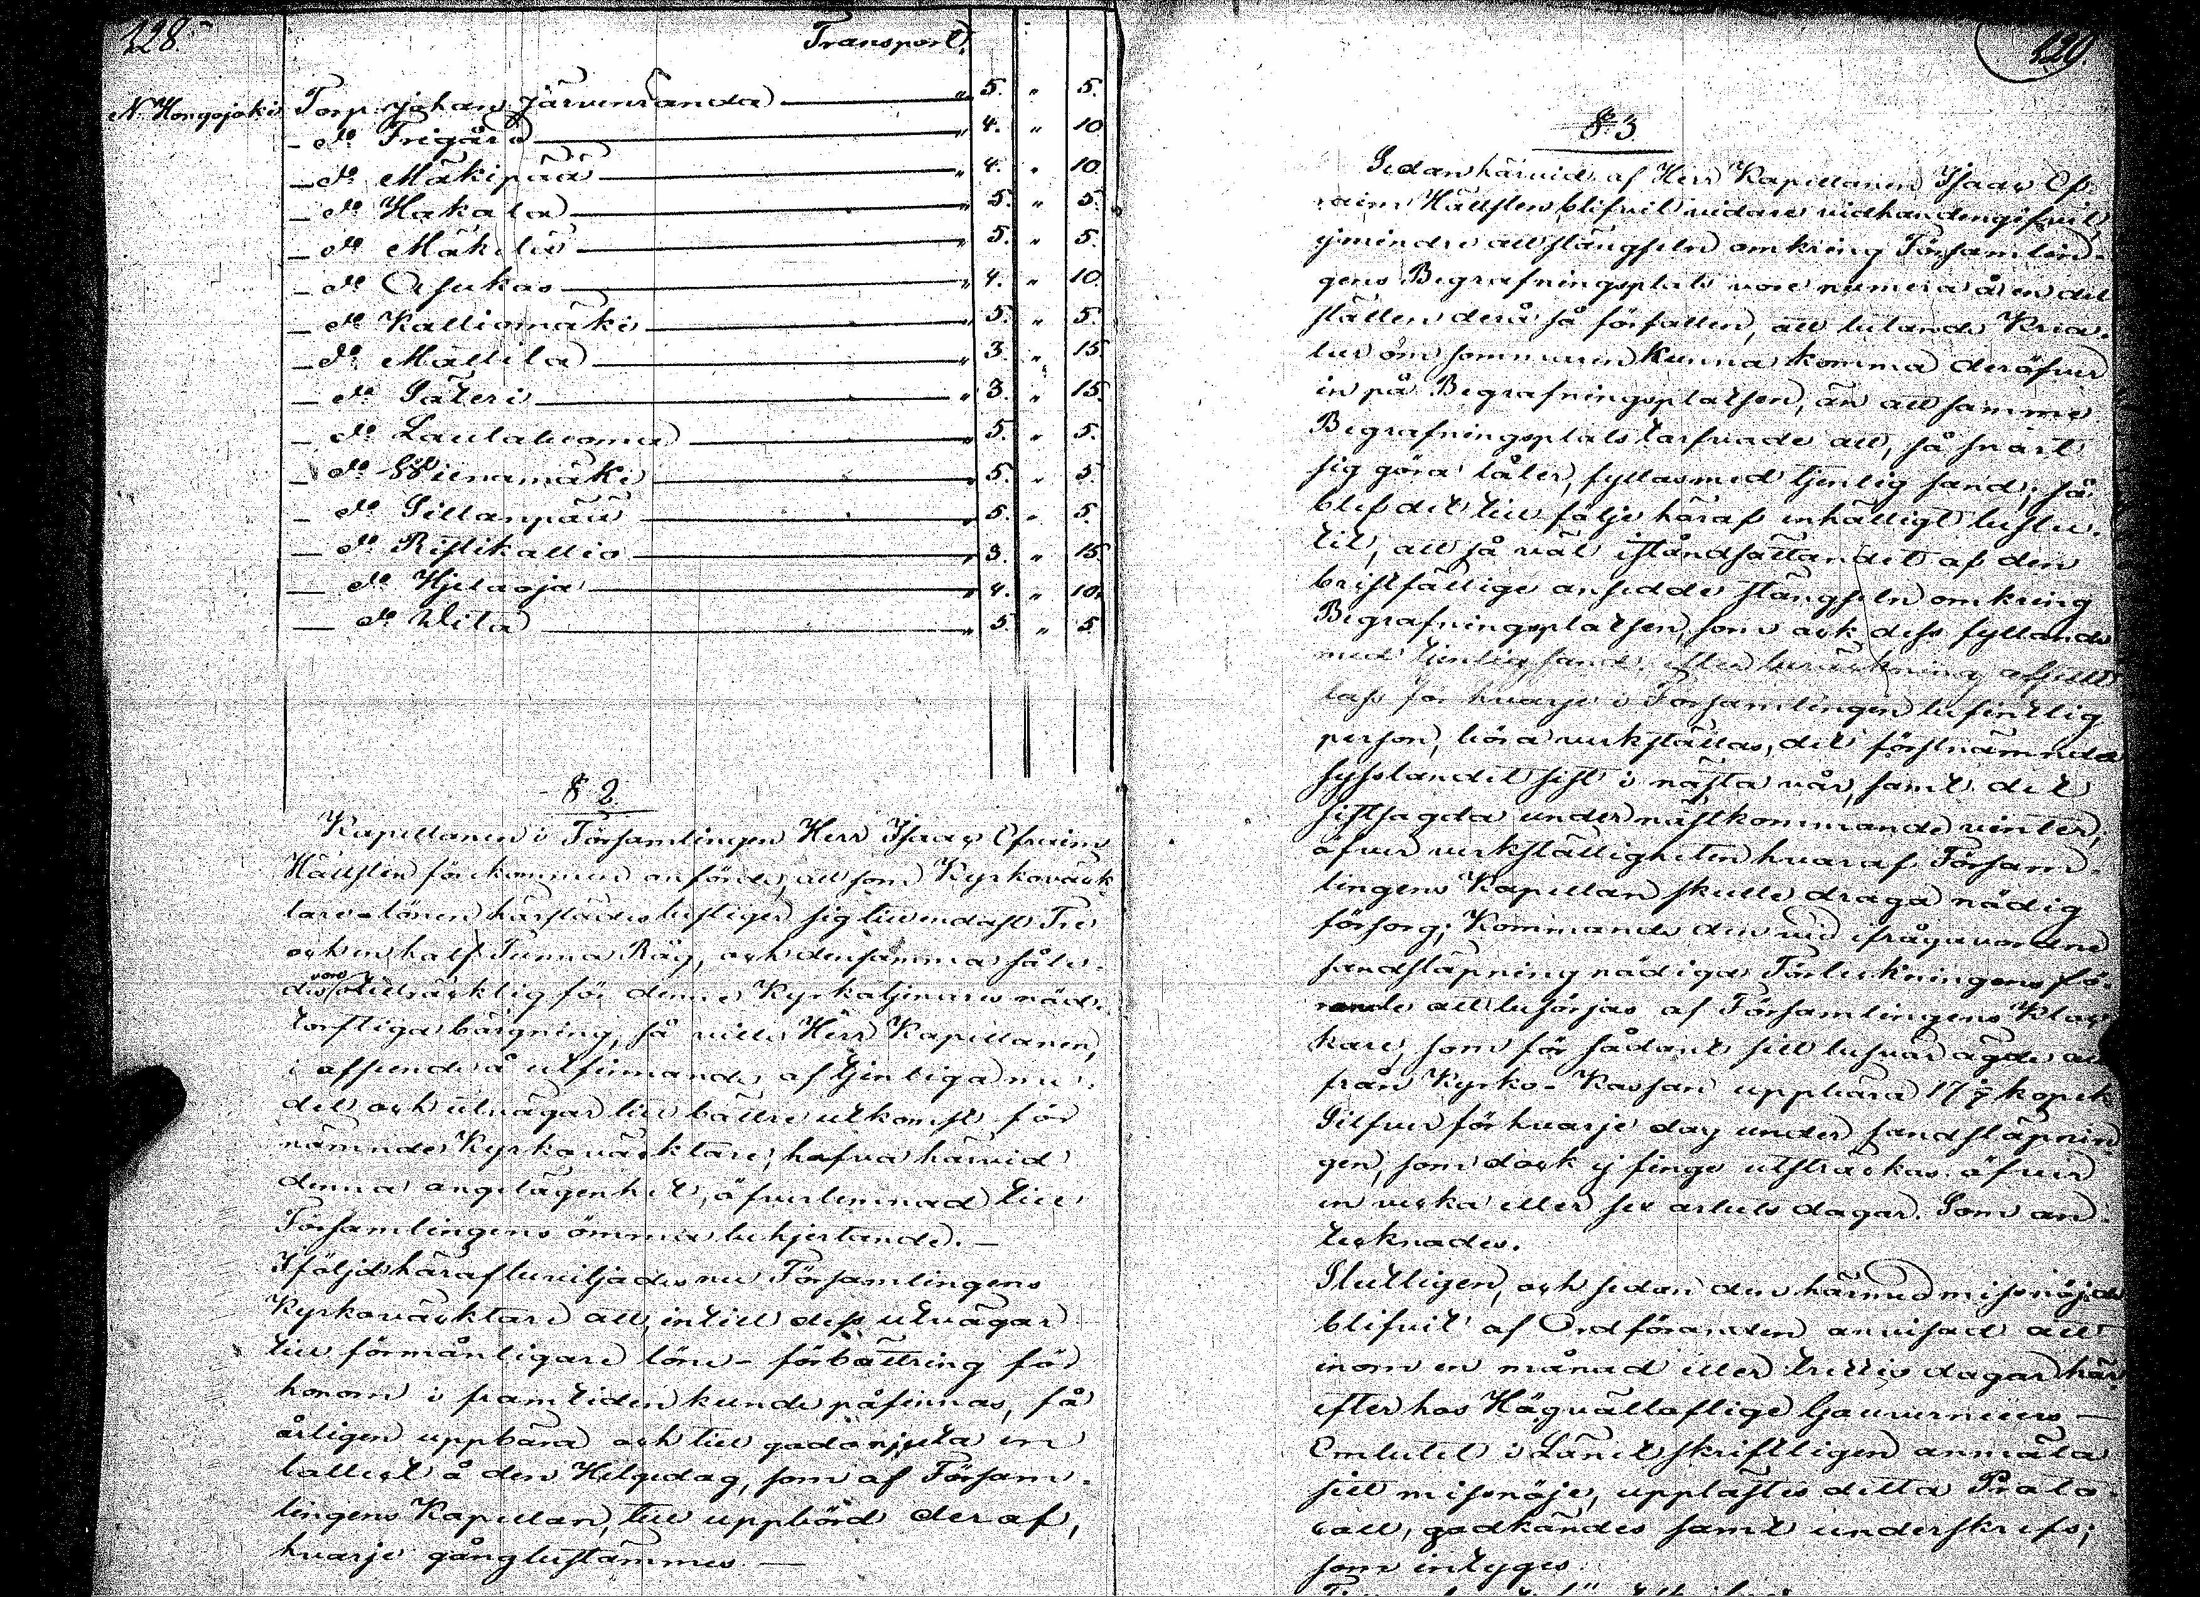 128
Transport,
N. Hongojoki Torp. Johan Järvenranda " 5. " 5.
- do Frigård " 4. " 10
- do Mäkipää " 4. " 10.
- do Hakala " 5. " 5.
- do Mäkelä " 5. " 5.
- do Asukas " 4. " 10.
- do Kalliomäki " 5. " 5.
- do Mattila " 3. " 15
- do Säteri " 3. " 15.
- do Lautaluoma " 5. " 5.
- do Wienamäki " 5. " 5.
- do Sillanpää " 5. " 5.
- do Ristikallio " 3. " 15.
- do Hjelaoja " 4. " 10.
- do Wita " 5. " 5
§ 2.
Kapellanen i Församlingen Herr Isaac Efraim
Hällsten förekommer anförde, att som Kyrkoväck-
tare-lönen härstädes bestiger sig till endast Tre
och en half Tunna Råg, och densamma såle-
des vore otillräcklig för denne Kyrkotjenares nöd-
torftiga bärgning, så ville Herr Kapellanen,
i afseende å utfinnande af tjenliga me-
del och utvägar till bättre utkomst för
nämnde Kyrkoväcktare, hafva härvid
denna angelägenhet, öfverlemnad till
Församlingens ömma behjertande. —
I följd häraf beviljades nu Församlingens
Kyrkoväcktare att, intill dess utvägar
till förmånligare löne-förbättring för
honom i framtiden kunde påfinnas, få
årligen uppbära och till godo njuta en
kollect å den Helgedag, som af Försam-
lingens Kapellan, till uppbörd deraf,
hvarje gång bestämmes —
129.
§ 3.
Sedan härvid af Herr Kapellanen Isaac Ef-
raim Hällsten blifvit vidare vidhandengifvit,
ej mindre att stängseln omkring Församlin-
gens Begrafningsplats vore numera å en del
ställen derå så förfallen, att lutande Krea-
tur om sommaren kunna komma deröfver
in på Begrafningsplatsen, än att samme
Begrafningsplats tarfvade att, så snart
sig göra låter, fyllas med tjenlig sand; så
blef det till följe häraf enhälligt beslu-
tit, att så väl iståndsättandet af den
bristfällige ansedde stängseln omkring
Begrafningsplatsen, som ock dess fyllande
med tjenlig sand, efter beräckning af ett
lass för hvarje i Församlingen befintlig
person, böra verkställas, det förstnämnda
sysslandet sist i nästa vår, samt det
sistsagda under nästkommande vinter,
öfver verkställigheten hvaraf Försam-
lingens Kapellan skulle draga nödig
försorg; Kommande den vid ifrågavarande
sandsläpning nödiga Förteckningens fö-
rande att besörjas af Församlingens Kloc-
kare, som för sådant sitt besvär ägde att
från Kyrko-Kassan uppbära 17 1/7 kopek
Silfver för hvarje dag under sandsläpnin-
gen, som dock ej finge utsträckas öfver
en vecka eller sex arbets dagar. Som an-
tecknades.
Slutligen, och sedan den härmed missnöjde
blifvit af Ordföranden anvisad att
inom en månad eller trettio dagar här-
efter hos Högvälloflige Gouverneurs-
Embetet i Länet skriftligen anmäla
sitt missnöje, upplästes detta Proto-
coll, godkändes samt underskrefs;
som intyges